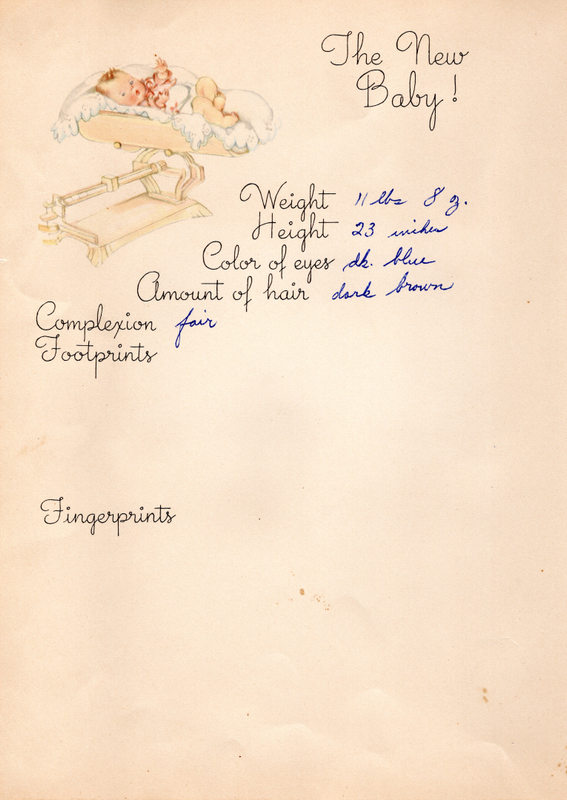 The New
Baby!
Weight 11 lbs 8 oz.
Height 23 inches
Color of eyes dk. blue
Amount of hair dark brown
Complexion fair
Footprints
Fingerprints